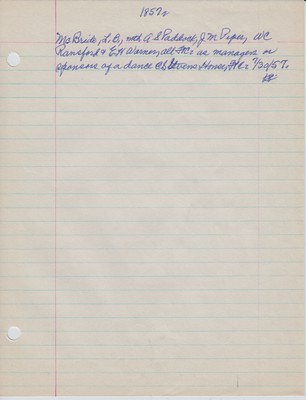 1857.
McBride, L.B., with A S Paddock, J.M. Pyper, WC
Ransford & E.H Warner, all FtC: as managers or
sponsors of a dance @ Stevens House, FtC: 7/30/57.